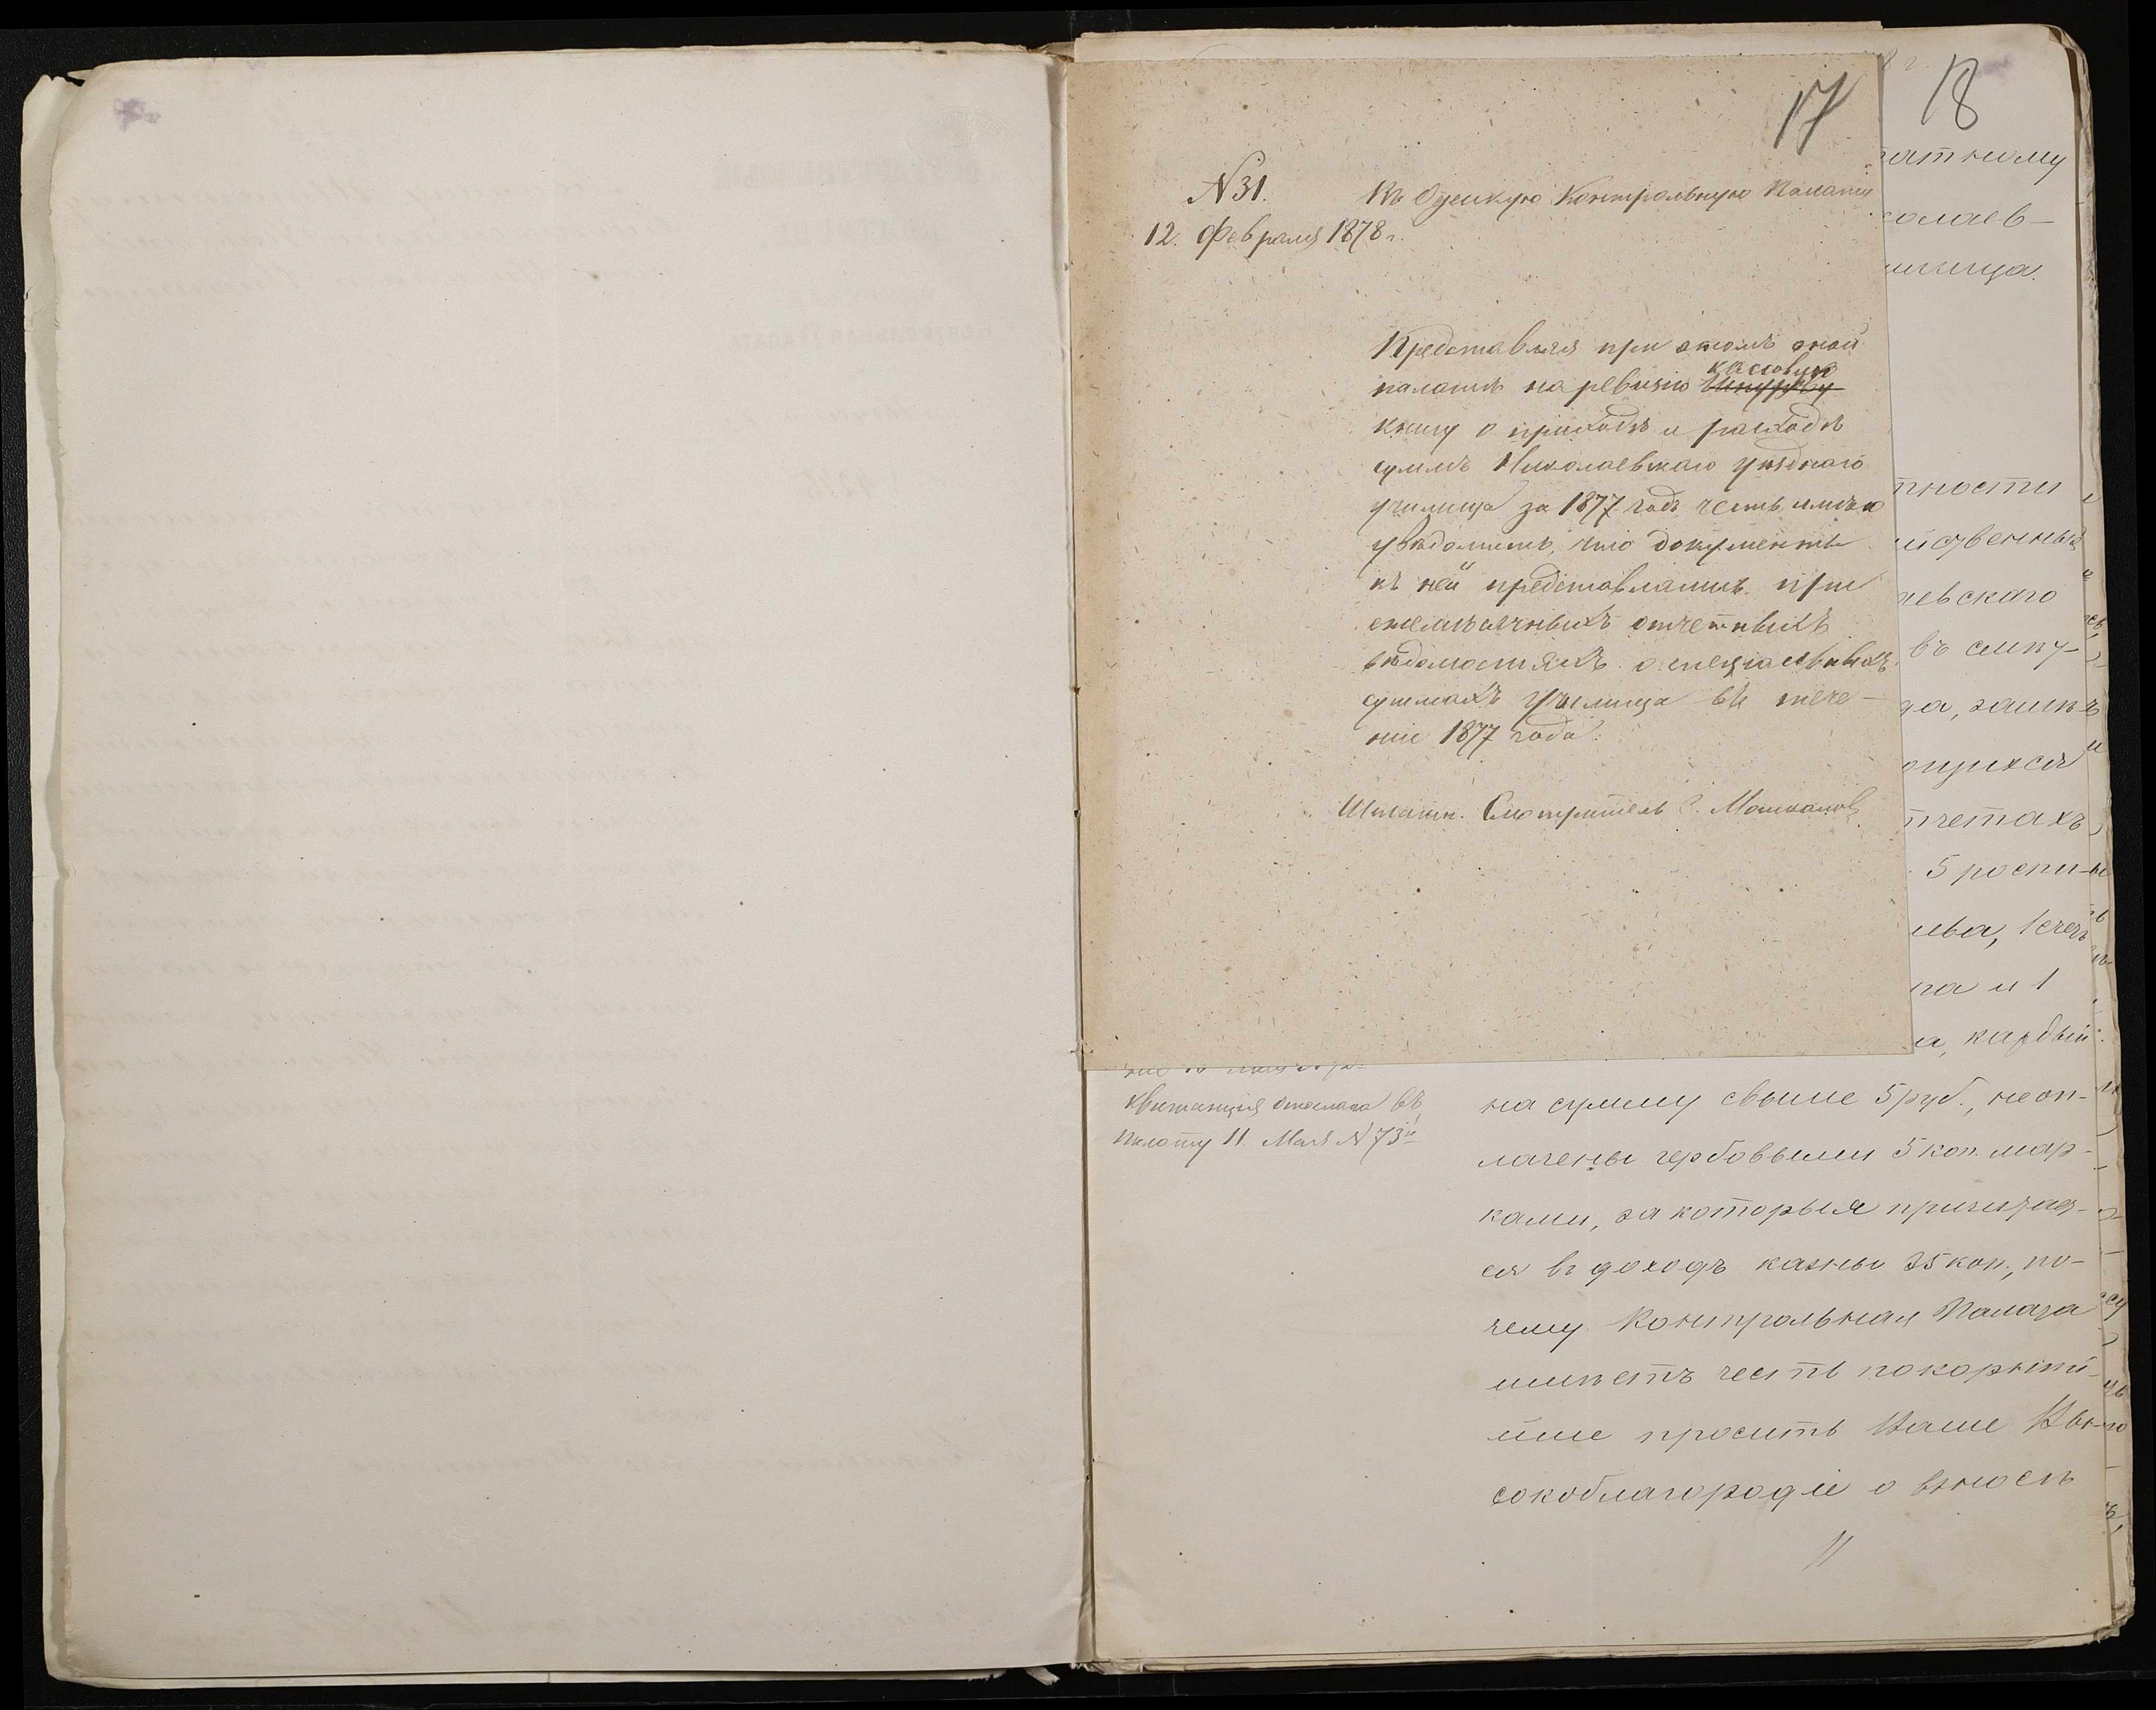 17
N 31.
12. Февраля 1878 г.
Въ Одесскую Контрольную Палату
Представляя при этомъ оной
палатѣ на ревизію кассовую
книгу о приходѣ и расходѣ
суммъ Николаевскаго уѣзднаго
училища за 1877 годъ честь имѣю
увѣдомить, что документы
къ ней представлялись при
ежемѣсячныхъ отчетныхъ
вѣдомостяхъ о спеціальныхъ
суммахъ училища въ тече-
ніи 1877 года.
Штатн. Смотритель С.
18
татному
колаев-
илища.
тности
аевскаго
въ смѣту-
ющихся
тчетахъ
5 роспи-
на и 1
Квитанція отослана въ
Палату 11 Мая N 73й
на сумму свыше 5 руб., не оп-
лачены гербовыми 5 коп. мар-
ками, за которыя причитает-
ся въ доходъ казны 35 коп., по-
чему Контрольная Палата
имѣетъ честь покорнѣй-
ше просить Ваше Вы-
сокоблагородіе о взносѣ